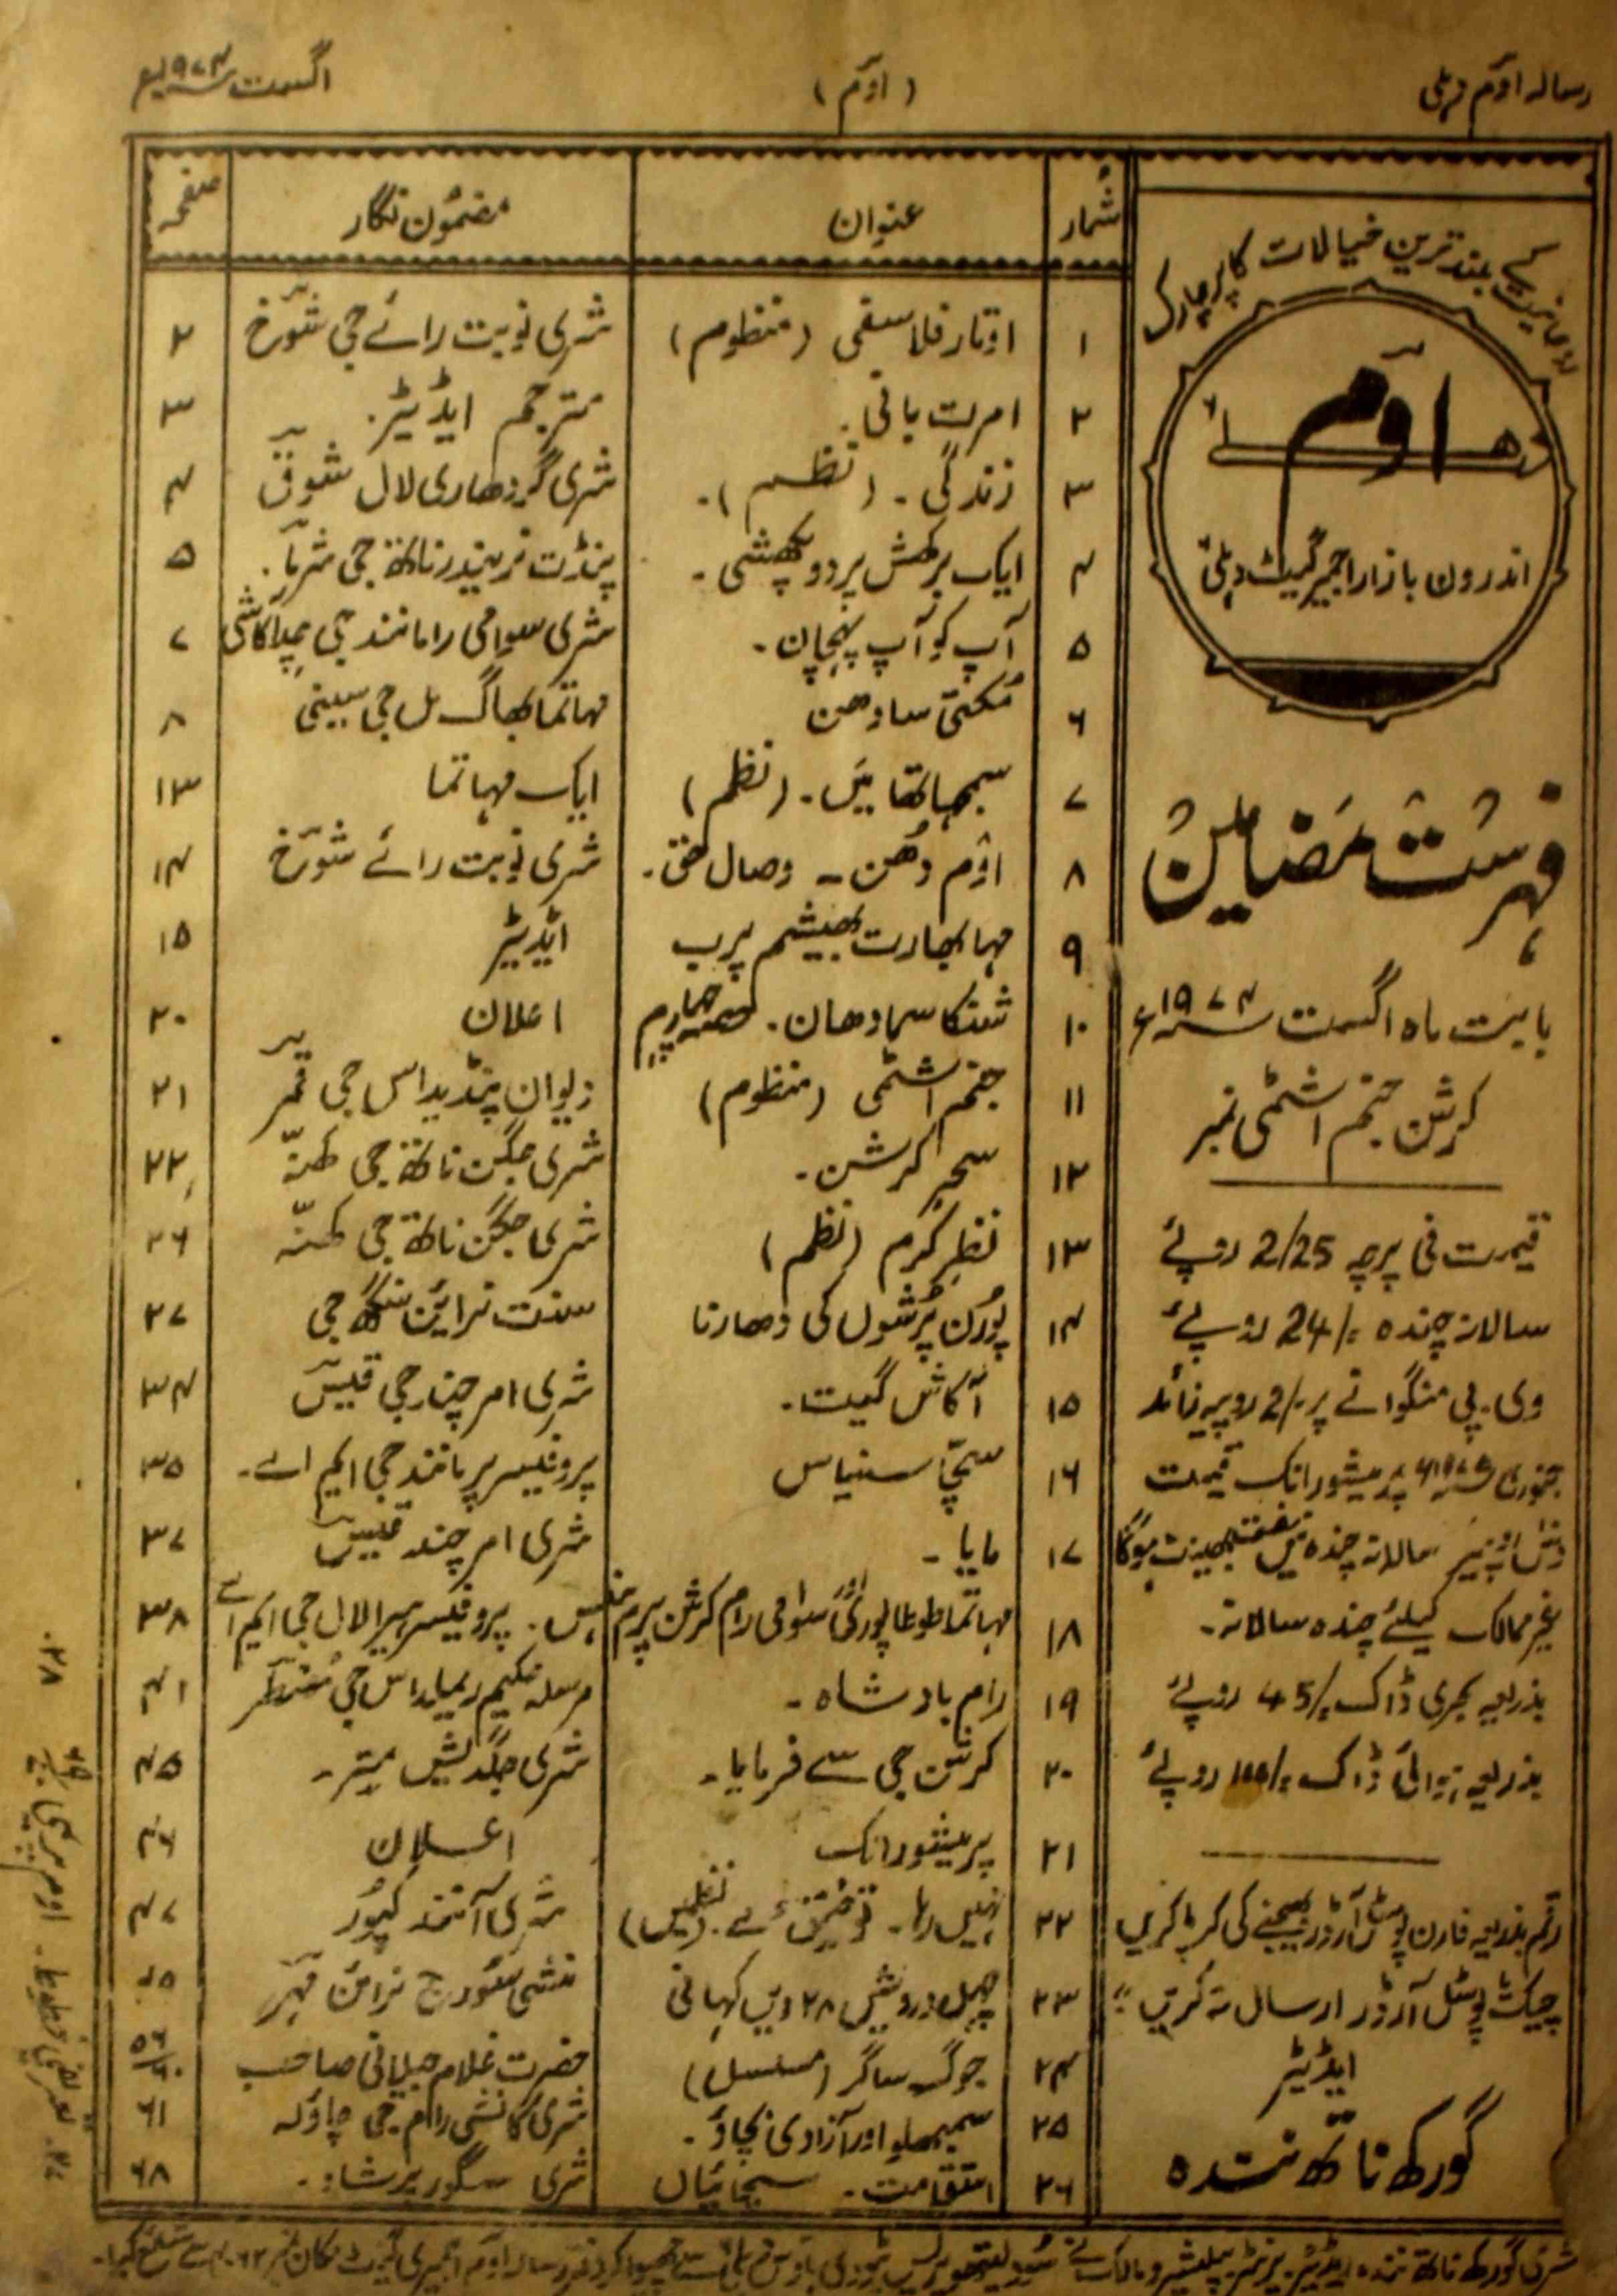 رسالہ اوم دہلی
(اوم)
اگست ۱۹۷۴ء
کے بلند ترین خیالات کا پرچارک
اوم
اندرون بازار اجمیر گیٹ دہلی
فہرست مضامین
بابت ماہ اگست ۱۹۷۴ء
کرشن جنم اشٹمی نمبر
قیمت فی پرچہ 2/25 روپے
سالانہ چندہ 24/- روپے
وی۔ پی منگوانے پر 2/- روپیہ زائد
جنوری ۱۹۷۵ء پرمیشور انک قیمت
سالانہ چندہ میں مفت بھینٹ ہوگا
غیر ممالک کیلئے چندہ سالانہ۔
بذریعہ بحری ڈاک 45/- روپے
بذریعہ ہوائی ڈاک 100/- روپے
رقم بذریعہ فارن پوسٹل آرڈر بھیجنے کی کرپا کریں
چیک پوسٹل آرڈر ارسال نہ کریں
ایڈیٹر
گورکھ ناتھ نندہ
شمار عنوان مضمون نگار صفحہ
۱ اوتار فلاسفی (منظوم) شری نوبت رائے جی شوخ ۲
۲ امرت بانی۔ مترجم ایڈیٹر۔ ۳
۳ زندگی۔ (نظم)۔ شری گردھاری لال شوق ۴
۴ ایک برکھش پر دو پکھشی۔ پنڈت نریندر ناتھ جی شرما۔ ۵
۵ آپ کو آپ پہچان۔ شری سوامی رامانند جی چداکاشی ۷
۶ مکتی سادھن مہاتما بھاگ مل جی سینی ۸
۷ سمجھا تھا میں۔ (نظم) ایک مہاتما ۱۳
۸ اوم دھن۔ وصال حق۔ شری نوبت رائے شوخ ۱۴
۹ مہابھارت بھیشم پرب ایڈیٹر ۱۵
۱۰ شنکا سمادھان۔ حصہ چہارم اعلان ۲۰
۱۱ جنم اشٹمی (منظوم) دیوان پنڈیداس جی قمر ۲۱
۱۲ سحر کرشن۔ شری جگن ناتھ جی کھنہ ۲۲
۱۳ نظر کرم (نظم) شری جگن ناتھ جی کھنہ ۲۶
۱۴ پورن پرشوں کی دھارنا سنت نرائن سنگھ جی ۲۷
۱۵ آکاش گیت۔ شری امر چند جی قیس ۳۴
۱۶ سچا سنیاس پروفیسر پرمانند جی ایم اے۔ ۳۵
۱۷ مایا۔ شری امر چند قیس ۳۷
۱۸ مہاتما طوطا پوری سوامی رام کرشن پرم ہنس۔ پروفیسر ہیرا لال جی ایم اے ۳۸
۱۹ رام بادشاہ۔ مرسلہ حکیم رمیاداس جی منتظر ۴۱
۲۰ کرشن جی سے فرمایا۔ شری جگدیش متر۔ ۴۵
۲۱ پرمیشور انک اعلان ۴۶
۲۲ نہیں رہا۔ (نظمیں) شری آنند کپور ۴۷
۲۳ چہل درویش ۲۸ ویں کہانی منشی سورج نرائن مہر
۲۴ جوگ ساگر (مسلسل) حضرت غلام جیلانی صاحب ۵۶/۶۰
۲۵ سمبھلو اور آزادی بچاؤ۔ شری کانشی رام جی چاولہ ۶۱
۲۶ استقامت۔ سچائیاں شری ستگور پرشاد۔ ۶۸
شری گورکھ ناتھ نندہ ایڈیٹر، پرنٹر، پبلیشر و مالک نے